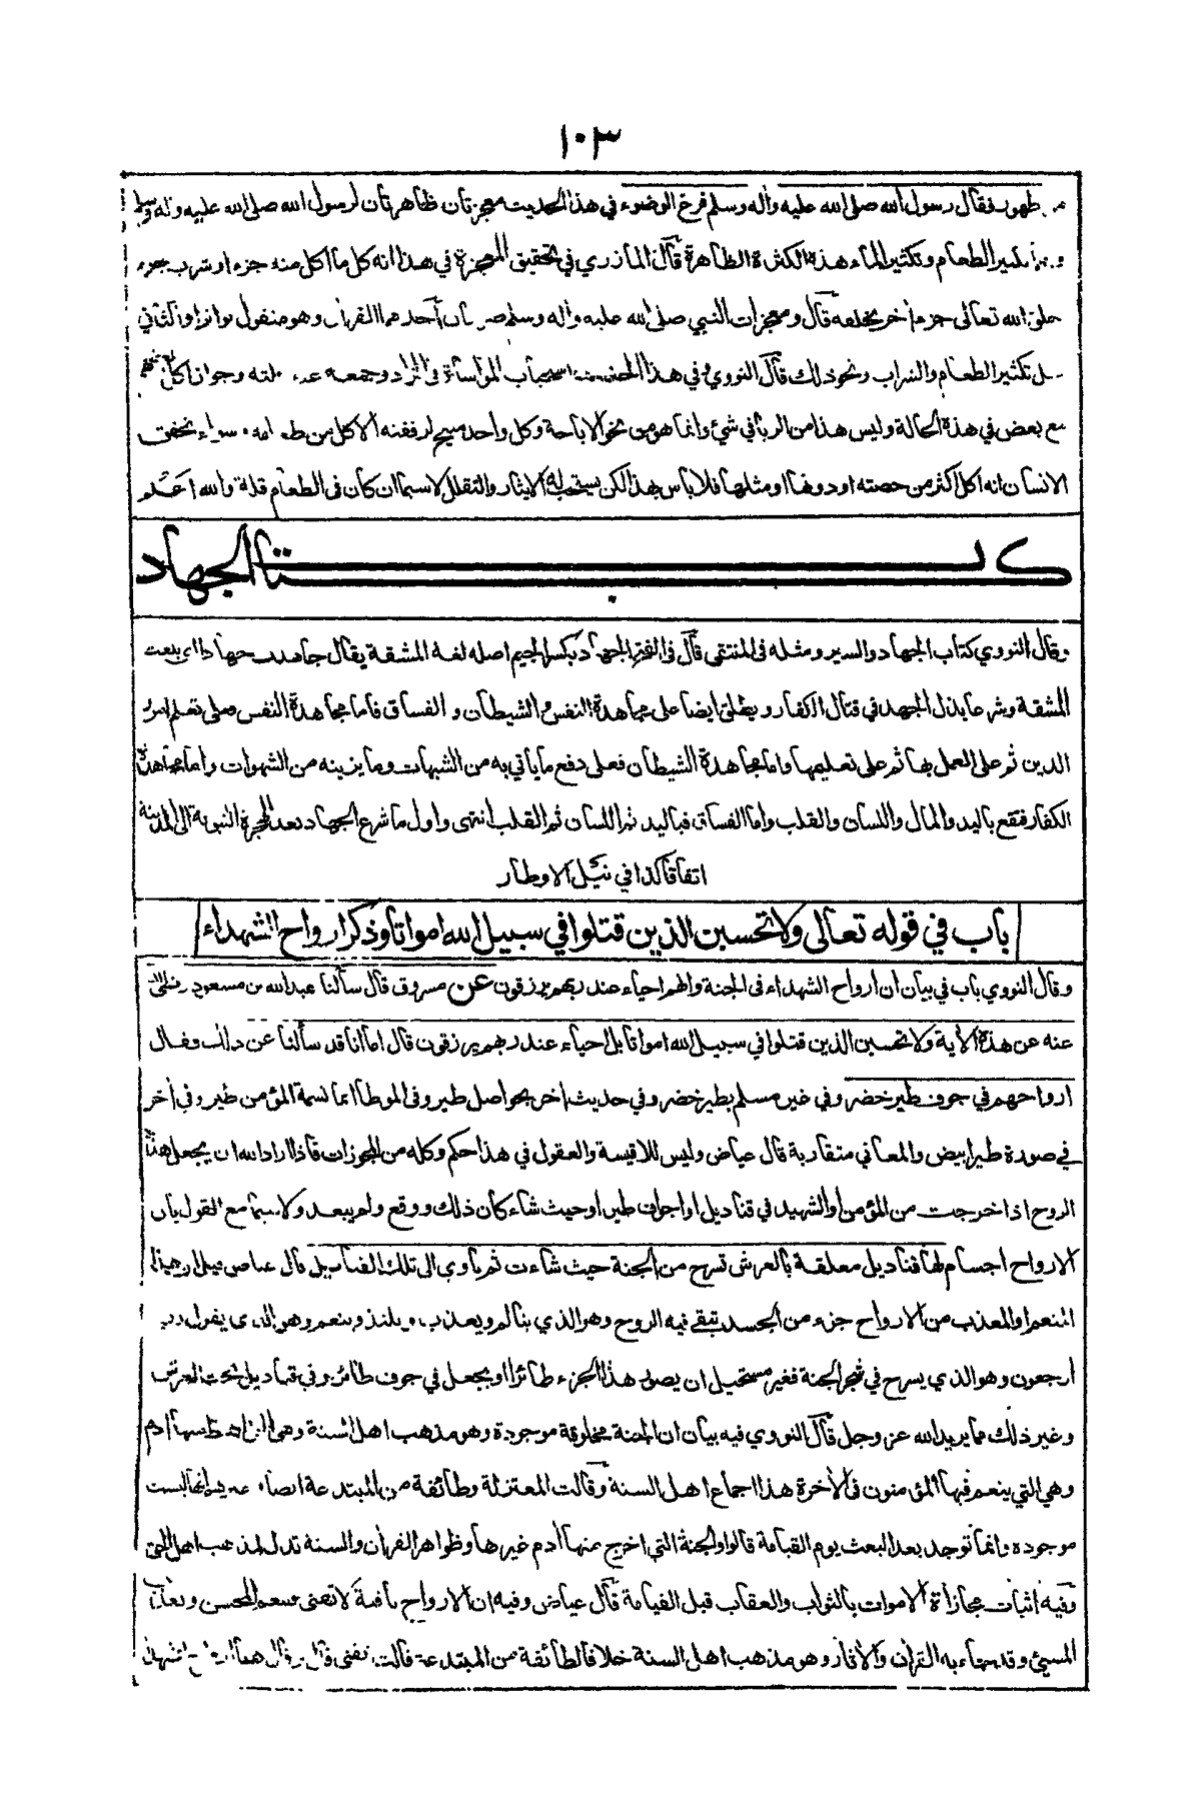 ١٠٣
طهور فقال رسول الله صلى الله عليه وأله وسلم فرغ الوضوء في هذا الحديث معجزتان ظاهرتان لرسول الله صلى الله عليه وأله وسلم
الطعام وتكثير الماء هذه الكثرة الظاهرة قال المازري في تحقيق المعجزة في هذا انه كل ما اكل منه جزء او شرب جزء
خلق الله تعالى جزء أخر يخلفه قال ومعجزات النبي صلى الله عليه وأله وسلم احدهما القرأن وهو منقول تواترا والثاني
تكثير الطعام والشراب ونحو ذلك قال النووي وفي هذا الحديث استحباب المواساة في الزاد وجمعه عند قلته وجواز اكل بعضهم
مع بعض في هذة الحالة وليس هذا من الربا في شيء وانما هو من نحو الاباحة وكل واحد مبيح لرفقته الاكل من طعامه سواء تحقق
الانسان انه اكل اكثر من حصته او دونها او مثلها فلا باس بهذا لكن يستحب له الايثار والتقلل لاسيما ان كان في الطعام قلة والله اعلم
كتاب الجهاد
وقال النووي كتاب الجهاد والسير ومثله في المنتقى قال في الفتح الجهاد بكسر الجيم اصله لغة المشقة يقال جاهدت جهادا اي بلغت
المشقة وشرعا بذل الجهد في قتال الكفار ويطلق ايضا على مجاهدة النفس والشيطان والفساق فاما مجاهدة النفس فعلى تعلم امور
الدين ثم على العمل بها ثم على تعليمها واما مجاهدة الشيطان فعلى دفع ما ياتي به من الشبهات وما يزينه من الشهوات واما مجاهدة
الكفار فتقع باليد والمال واللسان والقلب واما الفساق فباليد ثم اللسان ثم القلب انتهى واول ما شرع الجهاد بعد الهجرة النبوية الى المدينة
اتفاقا كذا في نيل الاوطار
باب في قوله تعالى ولا تحسبن الذين قتلوا في سبيل الله امواتا وذكر ارواح الشهداء
وقال النووي باب في بيان ان ارواح الشهداء في الجنة وانهم احياء عند ربهم يرزقون عن مسروق قال سألنا عبد الله بن مسعود رضي الله
عنه عن هذة الأية ولا تحسبن الذين قتلوا في سبيل الله امواتا بل احياء عند ربهم يرزقون قال اما انا قد سألنا عن ذلك فقال
ارواحهم في جوف طير خضر وفي غير مسلم بطير خضر وفي حديث أخر بحواصل طير وفي الموطا انما نسمة المؤمن طير وفي أخر
في صورة طير ابيض والمعاني متقاربة قال عياض وليس للاقيسة والعقول في هذا حكم وكله من المجوزات فاذا اراد الله ان يجعل هذه
الروح اذا خرجت من المؤمن او الشهيد في قناديل او اجواف طير او حيث شاء كان ذلك ووقع ولم يبعد ولا سيما مع القول بان
الارواح اجسام لها قناديل معلقة بالعرش تسرح من الجنة حيث شاءت ثم تأوي الى تلك القناديل قال عياض قيل ان هذا
المنعم او المعذب من الارواح جزء من الجسد تبقى فيه الروح وهو الذي يتالم ويعذب ويلتذ وينعم وهو الذي يقول رب
ارجعون وهو الذي يسرح في شجر الجنة فغير مستحيل ان يصور هذا الجزء طائرا او يجعل في جوف طائر وفي قناديل تحت العرش
وغير ذلك مما يريد الله عز وجل قال النووي فيه بيان ان الجنة مخلوقة موجودة وهو مذهب اهل السنة وهي التي اهبط منها أدم
وهي التي ينعم فيها المؤمنون في الأخرة هذا اجماع اهل السنة وقالت المعتزلة وطائفة من المبتدعة ايضا وغيرهم انها ليست
موجودة وانما توجد بعد البعث يوم القيامة قالوا والجنة التي اخرج منها أدم غيرها وظواهر القرأن والسنة تدل لمذهب اهل الحق
وفيه اثبات مجازاة الاموات بالثواب والعقاب قبل القيامة قال عياض وفيه ان الارواح باقية لا تفنى فينعم المحسن ويعذب
المسيء وقد جاء به القرأن والأثار وهو مذهب اهل السنة خلافا لطائفة من المبتدعة قالت تفنى قال